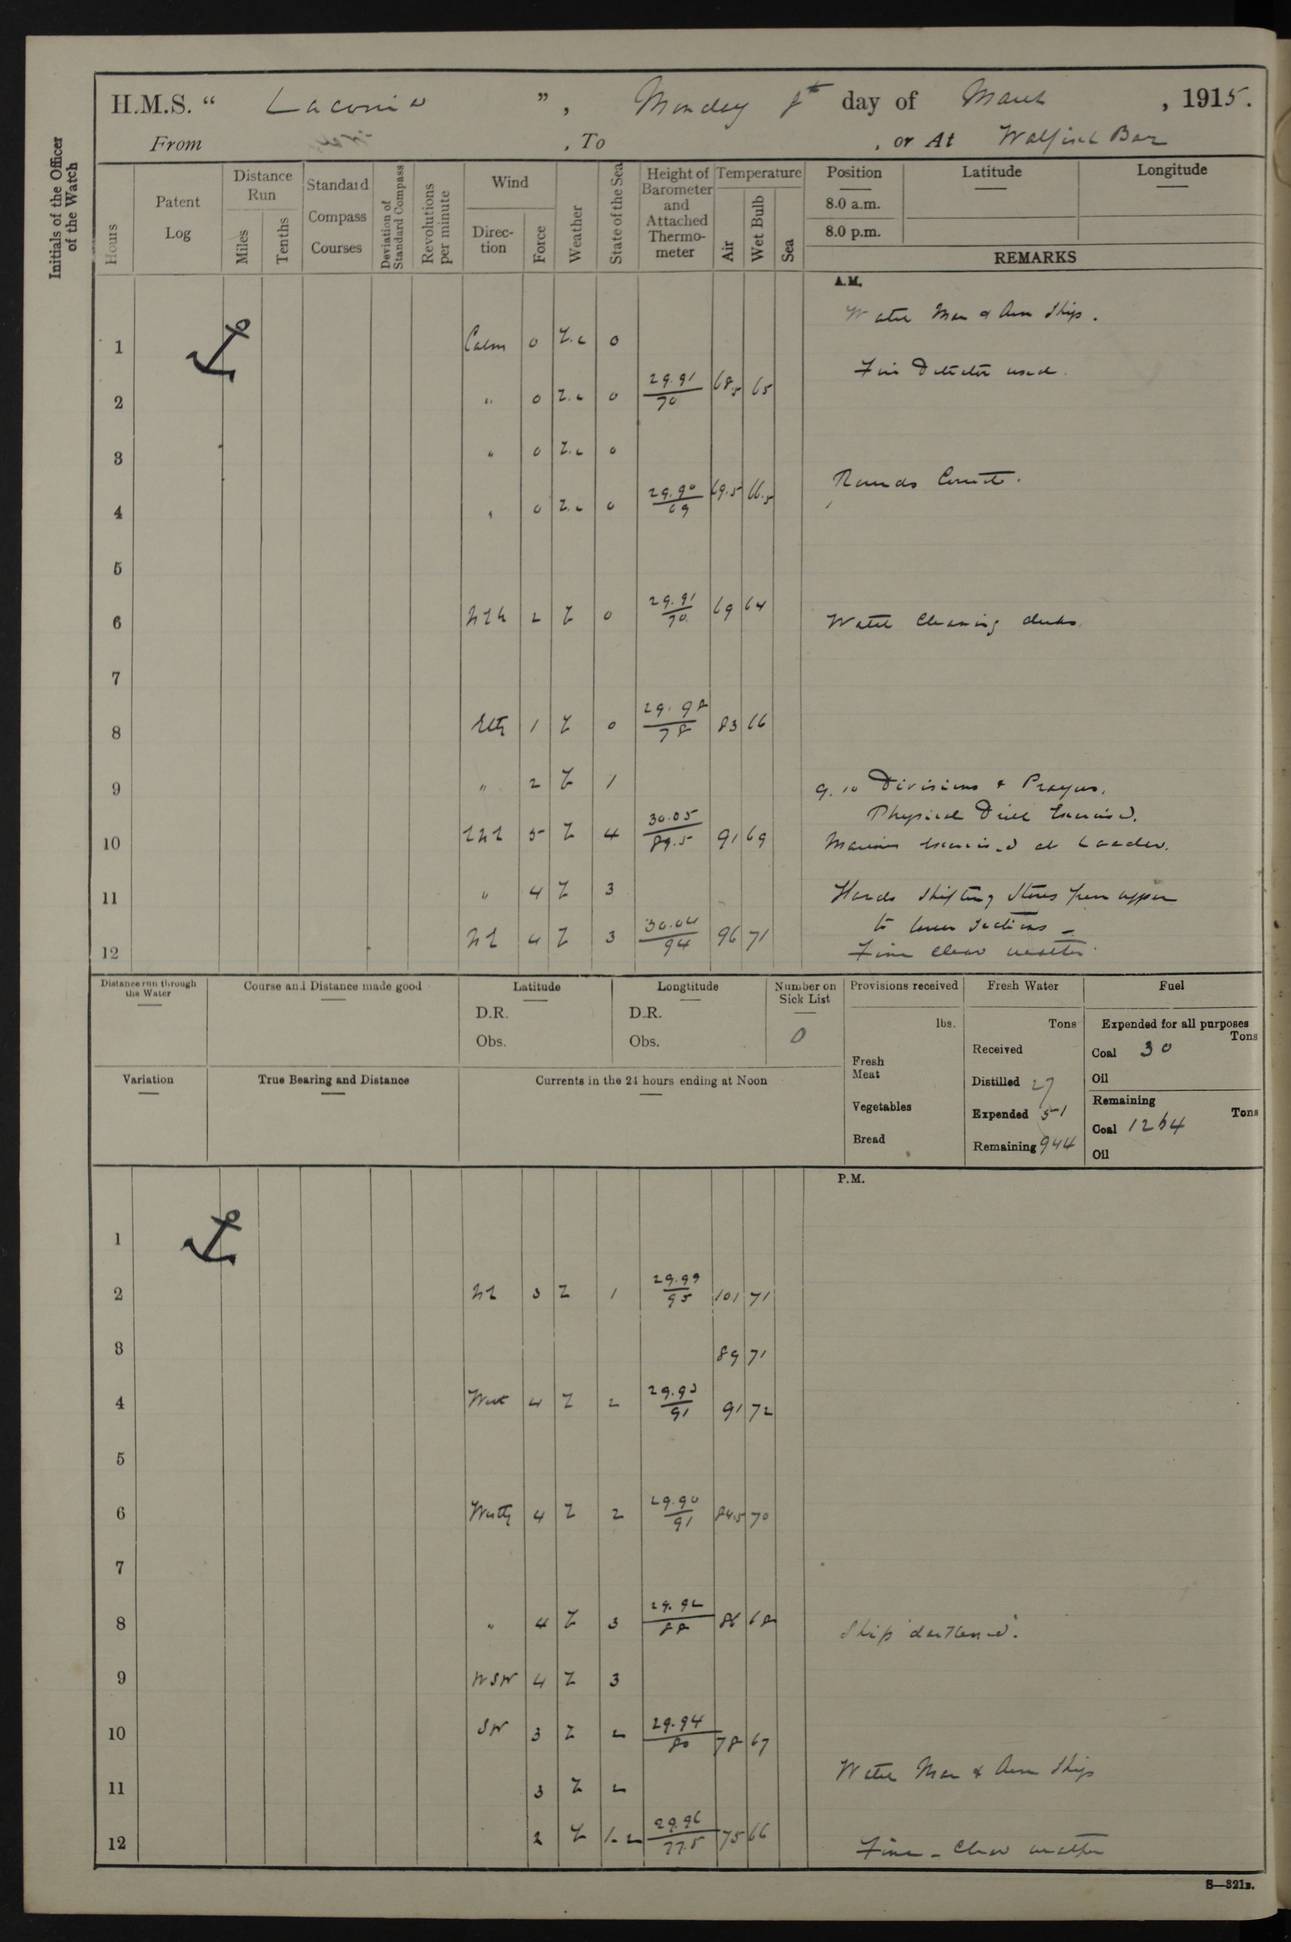 H.M.S. “ Laconia ”, Monday 8th day of March, 1915.
From , To , or At Walfisch Bay
Initials of the Officer of the Watch
Hours
Patent Log
Distance Run
Miles
Tenths
Standard Compass Courses
Deviation of Standard Compass
Revolutions per minute
Wind
Direction
Force
Weather
State of the Sea
Height of Barometer and Attached Thermometer
Temperature
Air
Wet Bulb
Sea
Position Latitude Longitude
8.0 a.m.
8.0 p.m.
REMARKS
A.M.
Watch Man & Arm Ship.
1 Calm 0 Z.c 0
Fire Detector used.
2 " 0 Z.c 0 29.91/70 68.5 65
3 " 0 Z.c 0
4 " 0 Z.c 0 29.90/69 69.5 66.5 Rounds Correct.
5
6 2 Z 0 29.91/70 69 64 Watch Cleaning decks.
7
8 1 Z 0 29.98/78 83 66
9 " 2 Z 1 9.10 Divisions & Prayers.
Physical Drill Exercised.
10 5 Z 4 30.05/89.5 91 69 Marines Exercised at Loader.
11 " 4 Z 3 Hands shifting Stores from upper
to lower sections -
12 4 Z 3 30.04/94 96 71 Fine clear weather.
Distance run through the Water
Course and Distance made good
Latitude
D.R.
Obs.
Longtitude
D.R.
Obs.
Number on Sick List
0
Provisions received
lbs.
Fresh Meat
Vegetables
Bread
Fresh Water
Tons
Received
Distilled 27
Expended 51
Remaining 944
Fuel
Expended for all purposes
Tons
Coal 30
Oil
Remaining
Tons
Coal 1264
Oil
Variation
True Bearing and Distance
Currents in the 24 hours ending at Noon
P.M.
1
2 3 Z 1 29.99/95 101 71
3 89 71
4 West 4 Z 2 29.93/91 91 72
5
6 Westly 4 Z 2 29.90/91 84.5 70
7
8 " 4 Z 3 29.92/88 86 68 Ship darkened.
9 WSW 4 Z 3
10 SW 3 Z 2 29.94/80 78 67
Watch Man & Arm Ship
11 3 Z 2
12 2 Z 1-2 29.96/77.5 75 66 Fine - Clear weather
S—321B.